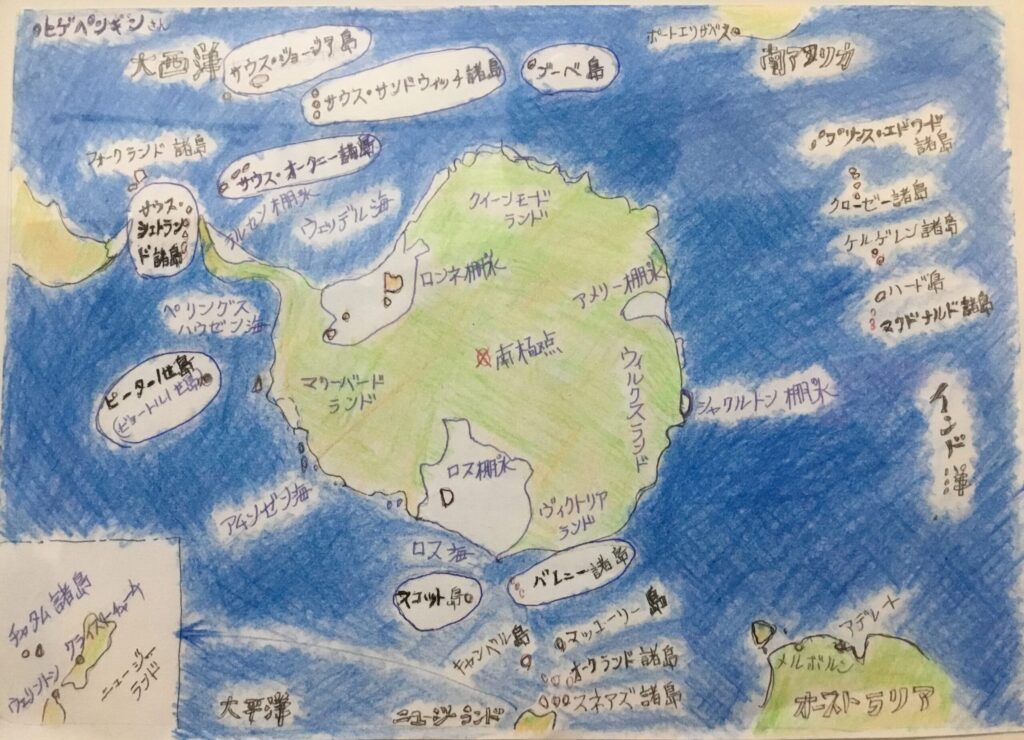 ヒゲペンギンさん
大西洋
サウス・ジョージア島
サウス・サンドウィッチ諸島
ブーベ島
ポートエリザベス
南アフリカ
プリンス・エドワード
諸島
フォークランド諸島
サウス・オークニー諸島
サウス・
シェトラン
ド諸島
ラルセン棚氷
ウェッデル海
クイーンモード
ランド
クローゼー諸島
ケルゲレン諸島
ハード島
マクドナルド諸島
ロンネ棚氷
アメリー棚氷
ベリングス
ハウゼン海
南極点
ピーター1世島
(ピョートル1世島)
マリーバード
ランド
ウィルクスランド
シャクルトン棚氷
インド洋
ロス棚氷
アムンゼン海
ヴィクトリア
ランド
ロス海
バレニー諸島
スコット島
チャタム諸島
クライストチャーチ
ウェリントン
ニュージー
ランド
キャンベル島
マッコーリー島
オークランド諸島
スネアズ諸島
アデレード
メルボルン
オーストラリア
太平洋
ニュージーランド